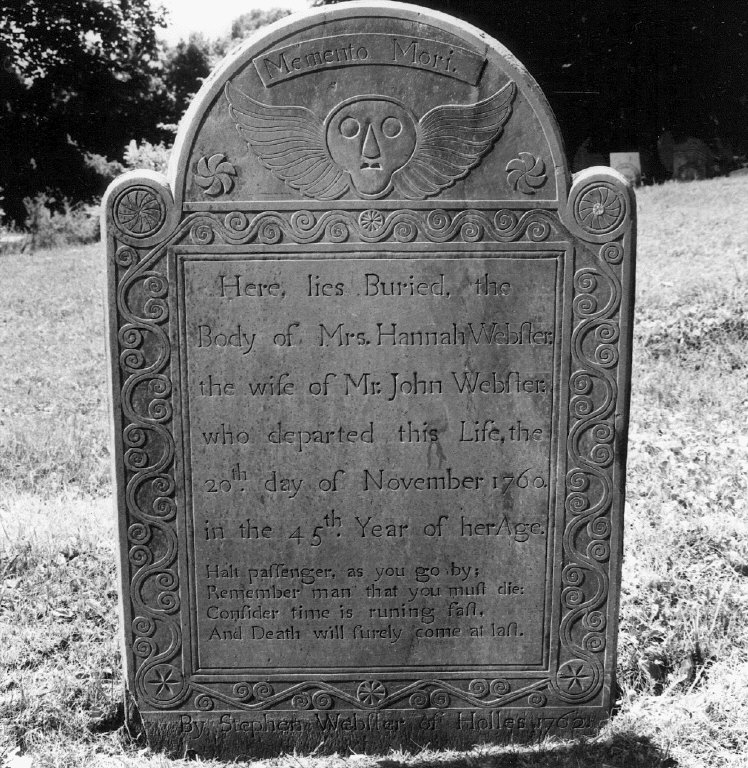 Memento Mori.
Here, lies Buried, the
Body of Mrs. Hannah Webſter,
the wife of Mr. John Webſter,
who departed this Life, the
20th. day of November 1760.
in the 45th. Year of her Age.
Halt paſſenger, as you go by;
Remember man that you muſt die:
Conſider time is runing faſt,
And Death will ſurely come at laſt.
By Stephen Webſter of Holles 1762